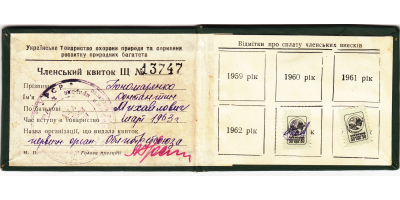 Українське Товариство охорони природи та сприяння
розвитку природних багатств
Членський квиток Щ № 13747
Прізвище Пономаренко
Ім'я Константин
По батькові Михайлович
Час вступу в товариство март 1963 г.
Назва організації, що видала квиток
первич. орган.
М. П. Голова президії
Відмітки про сплату членських внесків
1959 рік
1960 рік
1961 рік
1962 рік
к